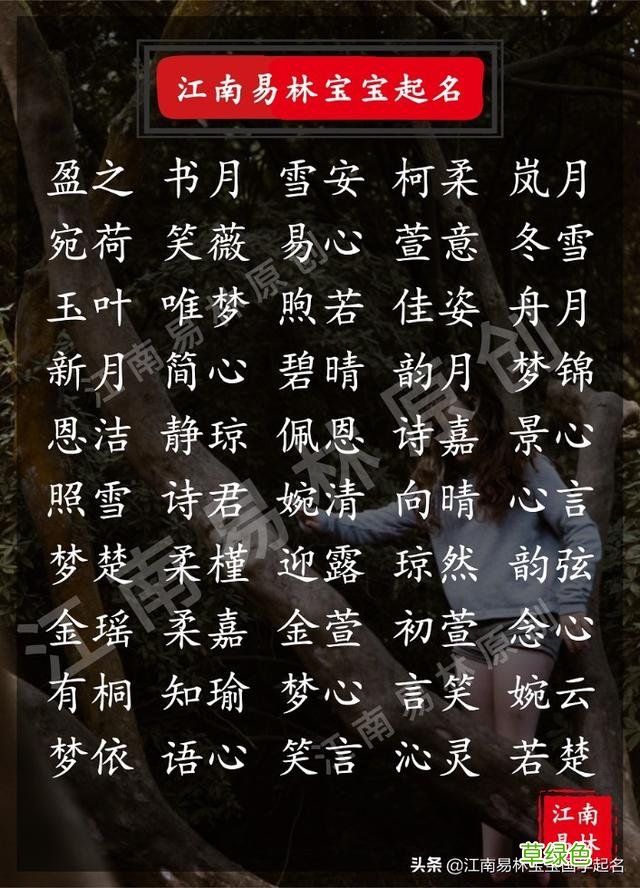 江南易林宝宝起名
盈之 书月 雪安 柯柔 岚月
宛荷 笑薇 易心 萱意 冬雪
玉叶 唯梦 煦若 佳姿 舟月
新月 简心 碧晴 韵月 梦锦
恩洁 静琼 佩恩 诗嘉 景心
照雪 诗君 婉清 向晴 心言
梦楚 柔槿 迎露 琼然 韵弦
金瑶 柔嘉 金萱 初萱 念心
有桐 知瑜 梦心 言笑 婉云
梦依 语心 笑言 沁灵 若楚
江南易林原创
江南易林原创
江南易林原创
江南
易林
草绿色
头条 @江南易林宝宝国学起名